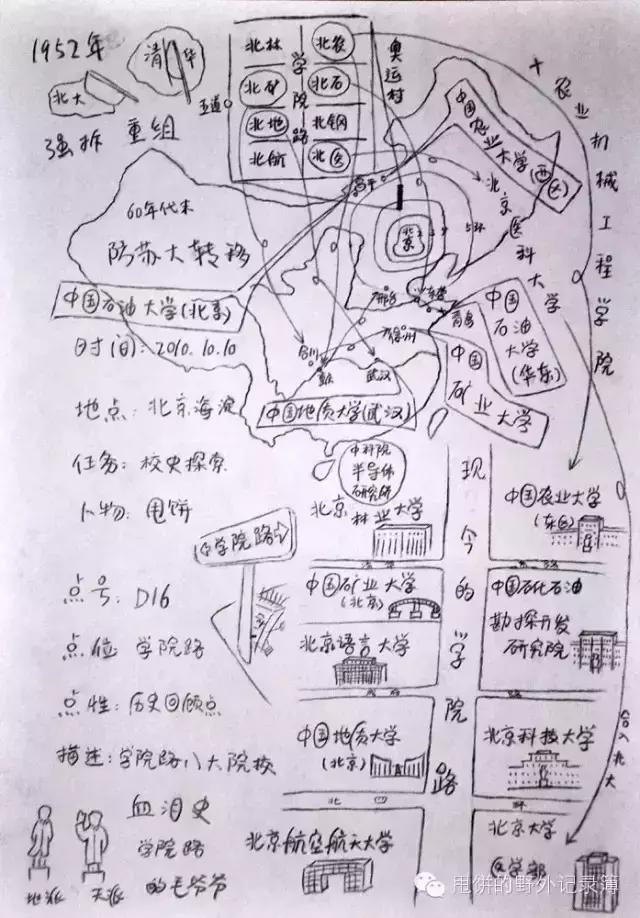 1952年
清华
北大
强拆 重组
五道口
学院路
北林
北农
北矿
北石
北地
北钢
北航
北医
奥运村
农业机械工程学院
中国农业大学(西区)
昌平
北京
5环
北京医科大学
60年代末
防苏大转移
中国石油大学(北京)
东营
青岛
徐州
中国石油大学(华东)
中国矿业大学
合川
重庆
武汉
中国地质大学(武汉)
时间:2010.10.10
地点:北京海淀
任务:校史探索
人物:甩饼
点号:D16
点位 学院路
点性:历史回顾点
描述:学院路八大院校
血泪史
学院路
的毛爷爷
地派
天派
学院路
现今的学院路
中科院
半导体
研究所
北京林业大学
清华东路
中国矿业大学
(北京)
北京语言大学
成府路
中国地质大学
(北京)
北四环
北京航空航天大学
中国农业大学
(东区)
中国石化石油
勘探开发
研究院
北京科技大学
合入北大
北京大学
医学部
甩饼的野外记录簿